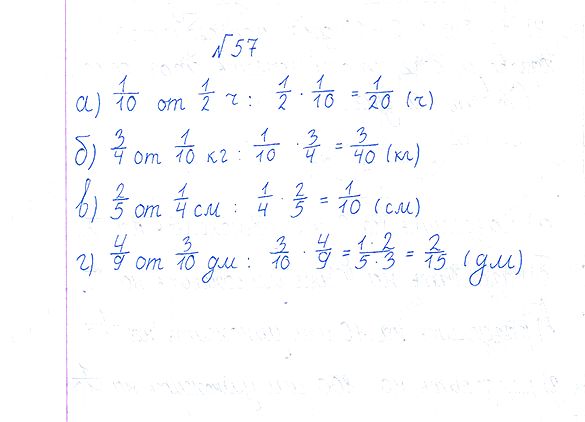 №57
а) 1/10 от 1/2 ч : 1/2 · 1/10 = 1/20 (ч)
б) 3/4 от 1/10 кг : 1/10 · 3/4 = 3/40 (кг)
в) 2/5 от 1/4 см : 1/4 · 2/5 = 1/10 (см)
г) 4/9 от 3/10 дм : 3/10 · 4/9 = 1·2/5·3 = 2/15 (дм)